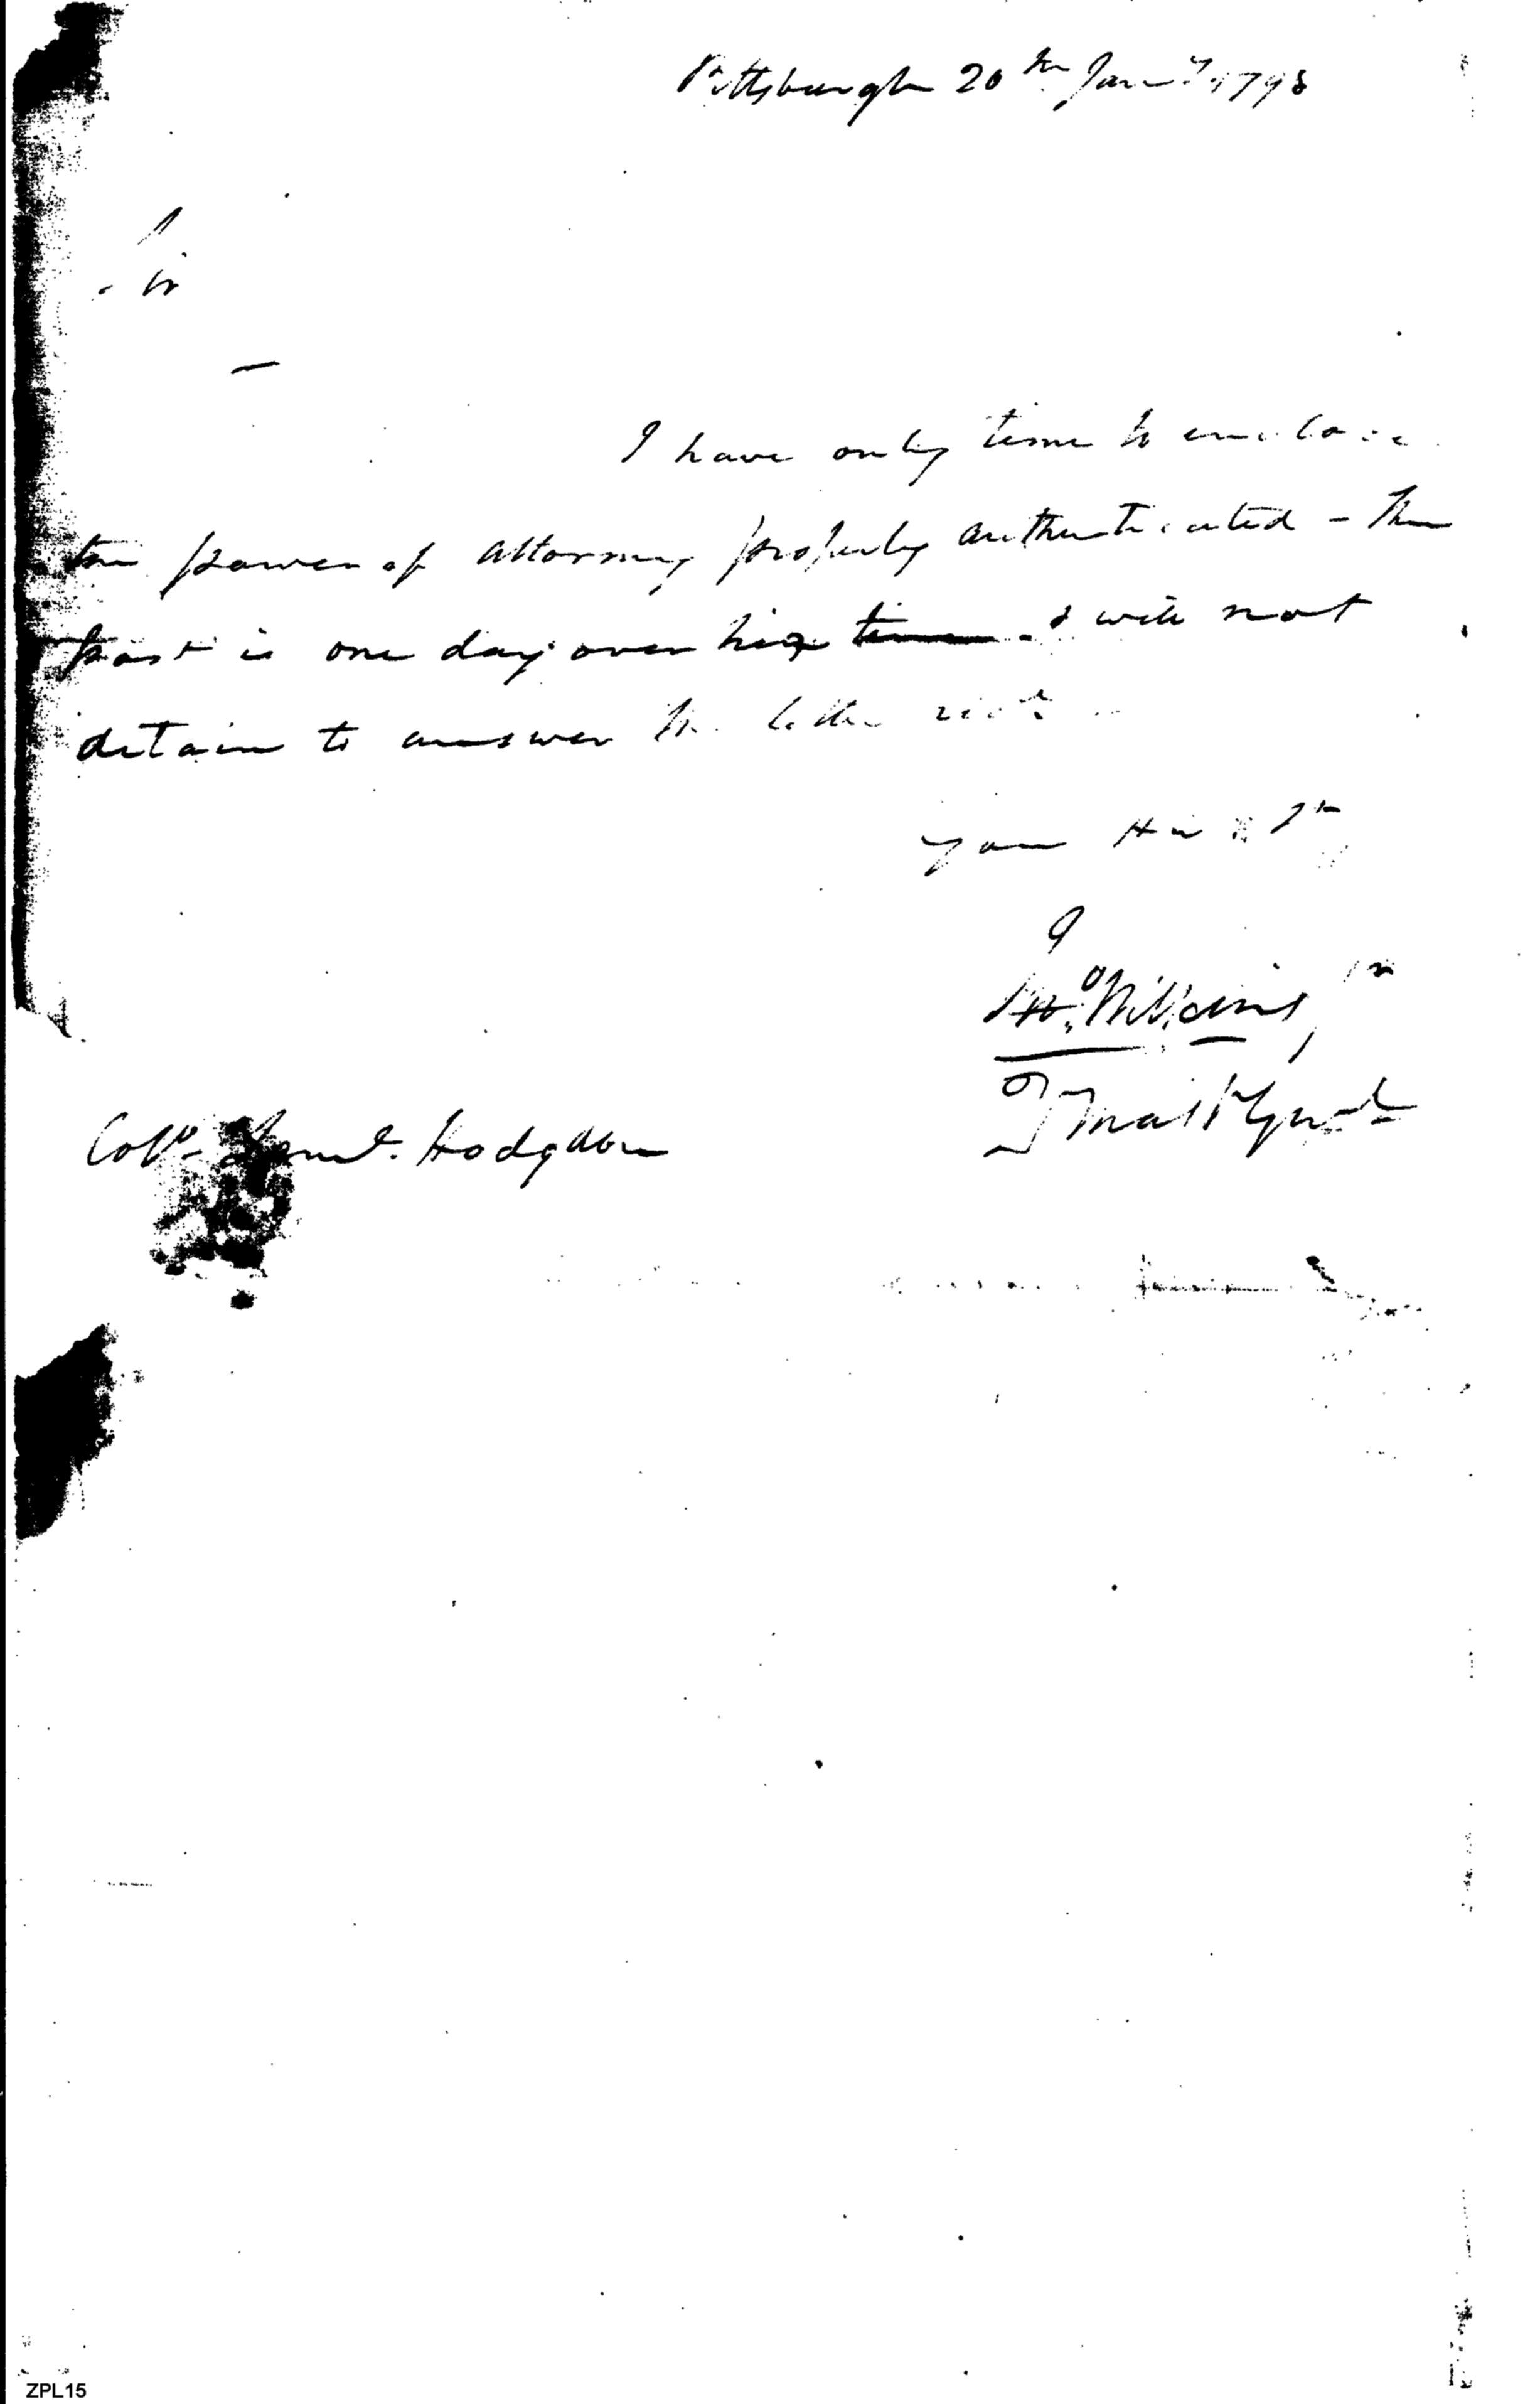 Pittsburgh 20th Jany. 1798
Sir
I have only time to enclose
the power of attorney properly authenticated - The
post is one day over his time - I will not
detain to answer the letter recd.
your Hu St
Jno. Wilkins Jr
Qr Mast Genl
Coll. Saml. Hodgdon
ZPL15